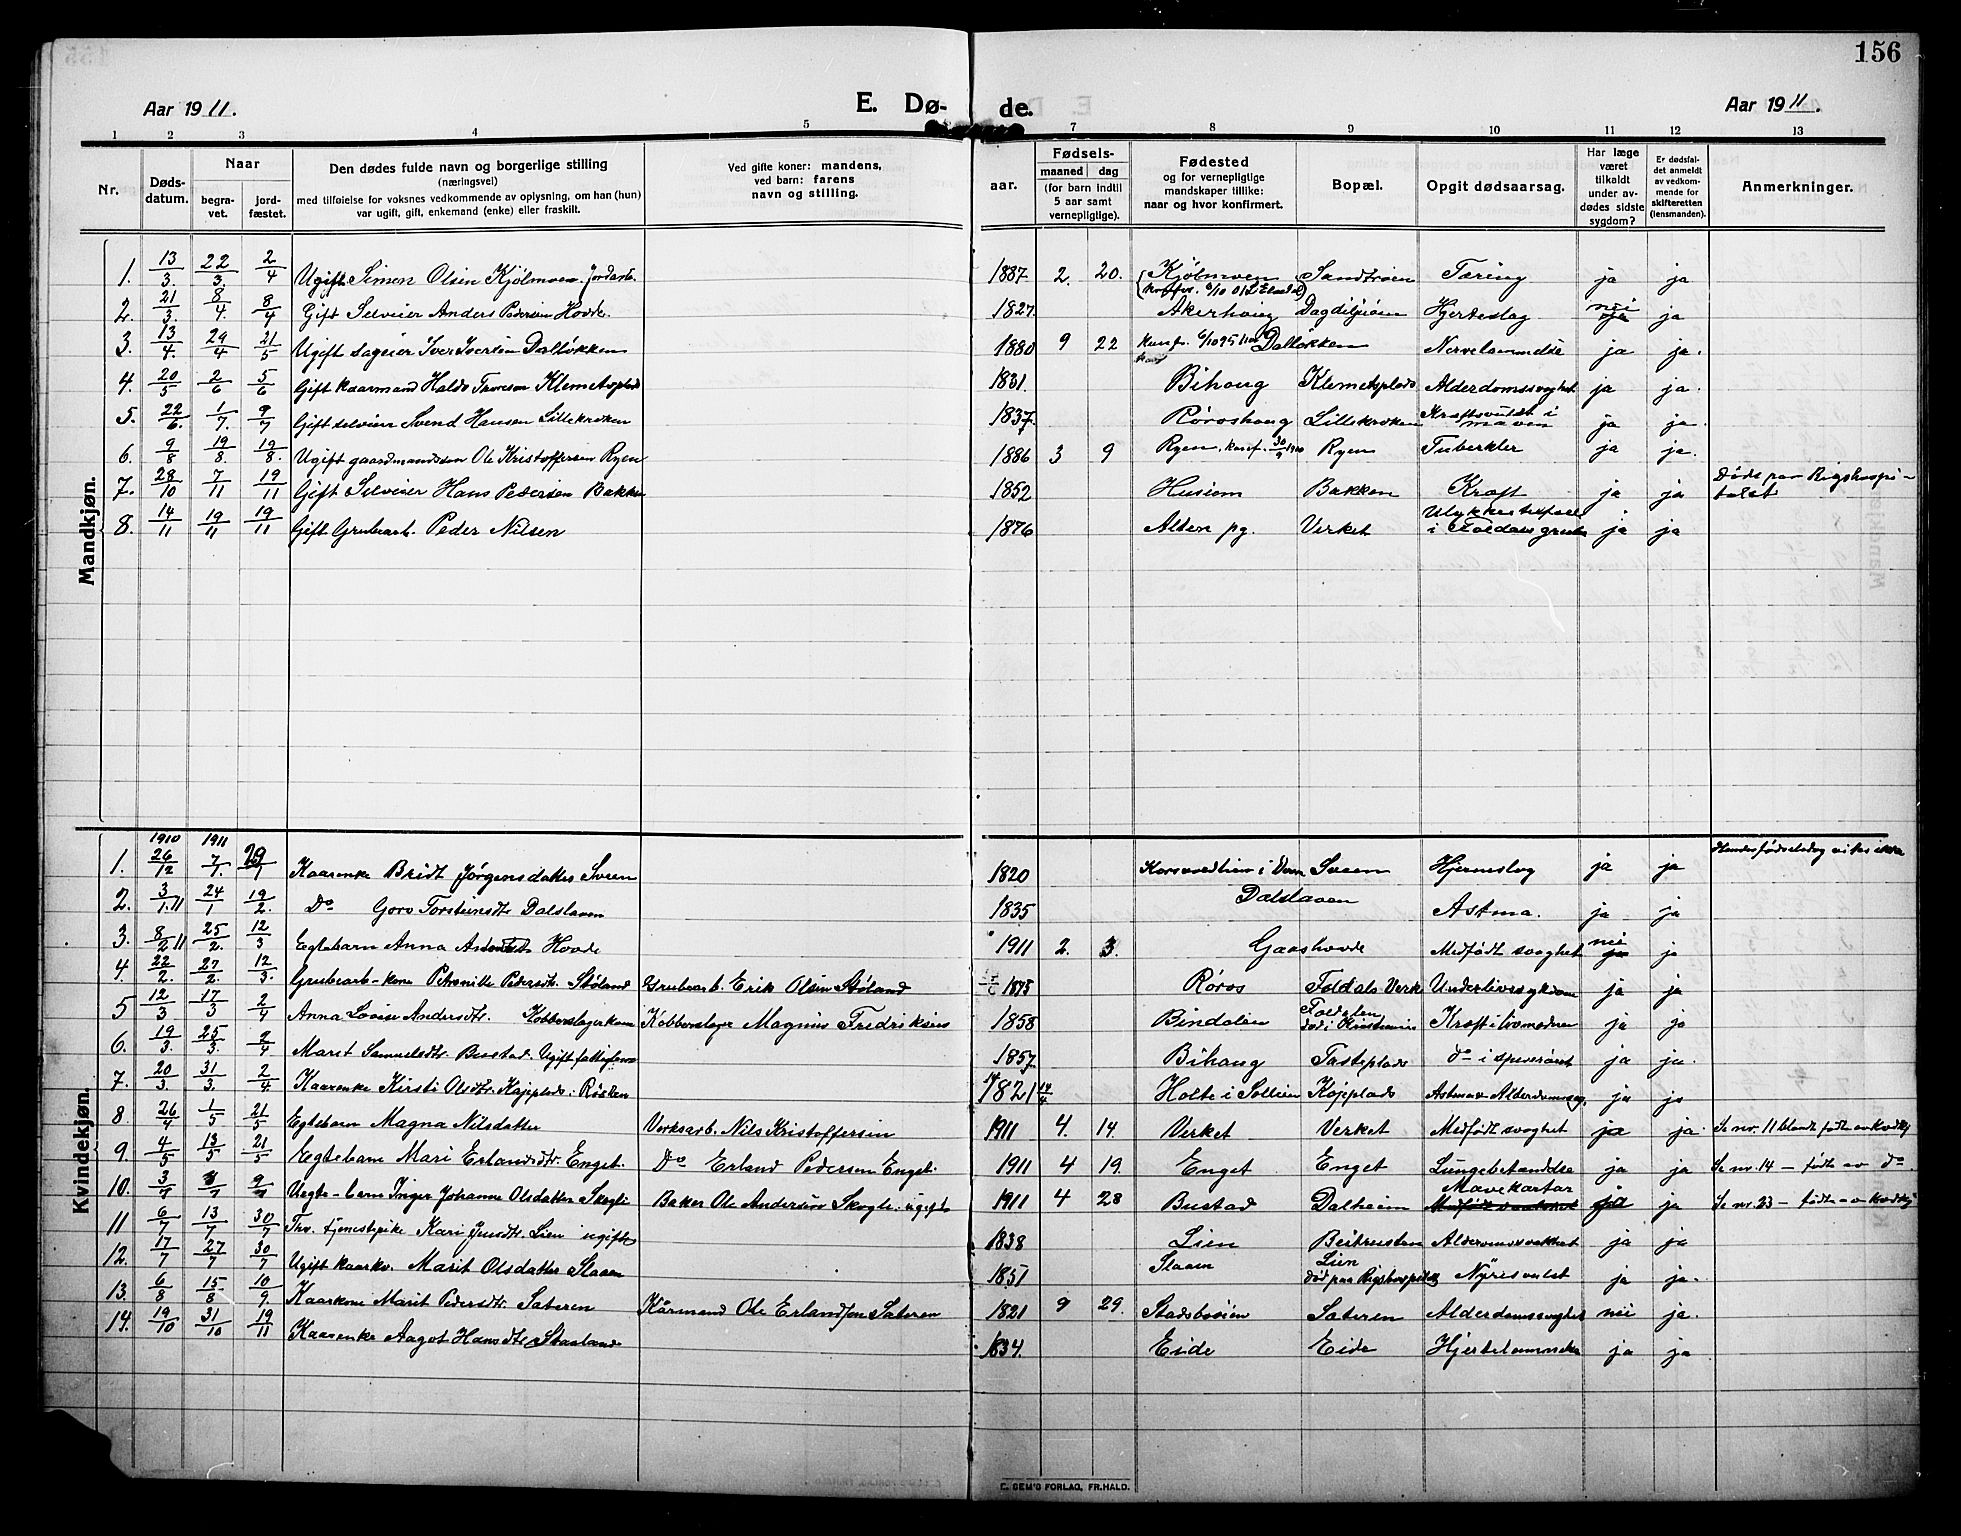 156
Aar 1911.
E. Dø-
de.
Aar 1911.
1 2 3 4 5 7 8 9 10 11 12 13
Nr.
Døds-
datum.
Naar
begra-
vet.
jord-
fæstet.
Den dødes fulde navn og borgerlige stilling
(næringsvei)
med tilføielse for voksnes vedkommende av oplysning, om han (hun)
var ugift, gift, enkemand (enke) eller fraskilt.
Ved gifte koner: mandens,
ved barn: farens
navn og stilling.
aar.
Fødsels-
maaned dag
(for barn indtil
5 aar samt
vernepligtige).
Fødested
og for vernepligtige
mandskaper tillike:
naar og hvor konfirmert.
Bopæl.
Opgit dødsaarsag.
Har læge
været
tilkaldt
under av-
dødes sidste
sygdom?
Er dødsfal-
det anmeldt
av vedkom-
mende for
skifteretten
(lensmanden).
Anmerkninger.
Mandkjøn.
1. 13/3. 22/3. 2/4 Ugift Simen Olsen Kjølmoen 1887. 2. 20. Kjølmoen Sandtrøen Tæring ja ja
2. 21/3. 8/4. 8/4 Gift Selveier Anders Pedersen Hovde. 1827. Akerhaug Hjerteslag nei ja
3. 13/4. 29/4 21/5 Ugift Iver Iversen Dalløkken 1880 9 22 Dalløkken Nervelammelse ja ja.
4. 20/5 2/6 5/6 Gift kaarmand Klemetsplads 1831. Bihaug Klemetsplads Alderdomssvaghet ja ja.
5. 22/6. 1/7. 9/7 Gift selveier Svend Hansen Lillekroken 1837. Røroshaug Lillekroken Kræftsvulst i maven ja ja.
6. 9/8 19/8. 19/8. Ugift gaardmandssøn Ole Kristoffersen Ryen 1886 3 9 Ryen Ryen Tuberkler ja ja.
7. 28/10 7/11 19/11 Gift Selveier Hans Pedersen Bakken 1852 Husom Bakken Kræft ja ja Døde paa Rigshospi-
talet
8. 14/11 19/11 19/11 Gift Grubearb. Peder Nilsen 1876 Alten pg. Verket Ulykkestilfælde
i Foldals grube ja ja
Kvindekjøn.
1910 1911
1. 26/12 7/1. 29/1 Kaarenke Bridt Jørgensdatter Sveen 1820 Sveen Hjerneslag ja ja Hendes fødselsdag vites ikke
2. 3/1.11 24/1 19/2. Do Goro Torsteinsdtr Dalslaven 1835 Dalslaven Astma. ja ja
3. 8/2 11 25/2. 12/3 Egtebarn Anna Hovde 1911 2. 3. Gaashovde Medfødt svaghet nei ja
4. 22/2. 27/2. 12/3. Grubearb-kone Petronille Pedersdtr. Støland Grubearb. Erik Olsen Støland 1873 Røros Foldals Verk Underlivssykdom ja ja
5 12/3 17/3 2/4 Anna Lovise Andersdtr. Kobberslagerkone Kobberslager Magnus Fredriksen 1858 Bindalen Foldalen
død i Kristiania ja ja
6. 19/3. 25/3. 2/4 Marit Samuelsdtr. Bustad. Ugift fattiglem 1857. Bihaug do i spiserøret ja ja
7. 20/3. 31/3. 2/4. Kaarenke Kirsti Olsdtr. Kojeplads. 1821 14/4 Holte i Sollien Kojeplads ja ja
8 26/4 1/5 21/5 Egtebarn Magna Nilsdatter Verksarb. Nils Kristoffersen 1911 4. 14. Verket Verket Medfødt svaghet ja ja. Se nr. 11 blandt fødte av kvdkj
9. 4/5 13/5 21/5 Egtebarn Mari Erlandsdtr. Enget. Do Erland Pedersen Enget. 1911 4 19. Enget Enget Lungebetændelse ja ja Se nr. 14 - fødte av do
10. 3/7 8/7 9/7 Uegte-barn Inger Johanne Olsdatter Skogli Baker Ole Andersen Skogli. ugift 1911 4 28 Bustad Dalheim Mavekatar
ja ja Se nr. 23 - fødte - av kvdkj
11 6/7 13/7 30/7 Fhv. tjenestepike Kari Lien ugift 1838 Lien Alderdomssvakhet ja ja
12. 17/7 27/7 30/7 Ugift kaarkv. Marit Olsdatter Slaaen 1851 Slaaen Lien
død paa Rigshospitalet Nyresvulst ja ja.
13. 6/8 15/8 10/9. Kaarkone Marit Pedersdtr. Sæteren Kårmand Ole Erlandsen Sæteren 1821 9 29. Stadsbøien Sæteren Alderdomssvaghet nei ja.
14. 19/10 31/10 19/11 Kaarenke Aagot Hansdtr. 1834. Eide Eide Hjertelammelse ja ja
E. SEM'S FORLAG, FR.HALD.